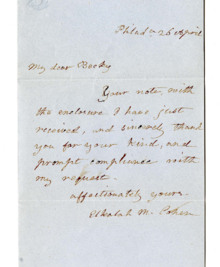 Philad.ª 26 April
My dear Becky
Your note, with
the enclosure I have just
received, and sincerely thank
you for your kind, and
prompt compliance with
my request.
affectionately yours.
M. Cohen